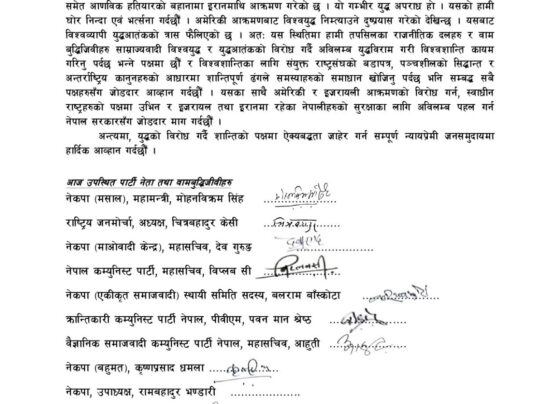 समेत आणविक हतियारको बहानामा इरानमाथि आक्रमण गरेको छ । यो गम्भीर युद्ध अपराध हो । यसको हामी
घोर निन्दा एवं भर्त्सना गर्दछौँ । अमेरिकी आक्रमणबाट विश्वयुद्ध निम्त्याउने दुष्प्रयास गरेको देखिन्छ । यसबाट
विश्वव्यापी युद्धआतंकको त्रास फैलिएको छ । अतः यस स्थितिमा हामी तपसिलका राजनीतिक दलहरु र वाम
बुद्धिजिवीहरु साम्राज्यवादी विश्वयुद्ध र युद्धआतंकको विरोध गर्दै अविलम्ब युद्धविराम गरी विश्वशान्ति कायम
गरिनु पर्दछ भन्ने पक्षमा छौँ र विश्वशान्तिका लागि संयुक्त राष्ट्रसंघको बडापत्र, पञ्चशीलको सिद्धान्त र
अन्तर्राष्ट्रिय कानुनहरुको आधारमा शान्तिपूर्ण ढंगले समस्याहरुको समाधान खोजिनु पर्दछ भनि सम्बद्ध सबै
पक्षहरुसँग जोडदार आव्हान गर्दछौँ । यसका साथै अमेरिकी र इजरायली आक्रमणको विरोध गर्न, स्वाधीन
राष्ट्रहरुको पक्षमा उभिन र इजरायल तथा इरानमा रहेका नेपालीहरुको सुरक्षाका लागि अविलम्ब पहल गर्न
नेपाल सरकारसँग जोडदार माग गर्दछौँ ।
अन्त्यमा, युद्धको विरोध गर्दै शान्तिको पक्षमा ऐक्यबद्धता जाहेर गर्न सम्पूर्ण न्यायप्रेमी जनसमुदायमा
हार्दिक आव्हान गर्दछौँ ।
आज उपस्थित पार्टी नेता तथा वामबुद्धिजीवीहरु
नेकपा (मसाल), महामन्त्री, मोहनविक्रम सिंह
राष्ट्रिय जनमोर्चा, अध्यक्ष, चित्रबहादुर केसी
नेकपा (माओवादी केन्द्र), महासचिव, देव गुरुङ
नेपाल कम्युनिस्ट पार्टी, महासचिव, विप्लव सी
नेकपा (एकीकृत समाजवादी) स्थायी समिति सदस्य, बलराम बाँस्कोटा
क्रान्तिकारी कम्युनिस्ट पार्टी नेपाल, पीवीएम, पवन मान श्रेष्ठ
वैज्ञानिक समाजवादी कम्युनिस्ट पार्टी नेपाल, महासचिव, आहुती
नेकपा (बहुमत), कृष्णप्रसाद धमला
नेकपा, उपाध्यक्ष, रामबहादुर भण्डारी